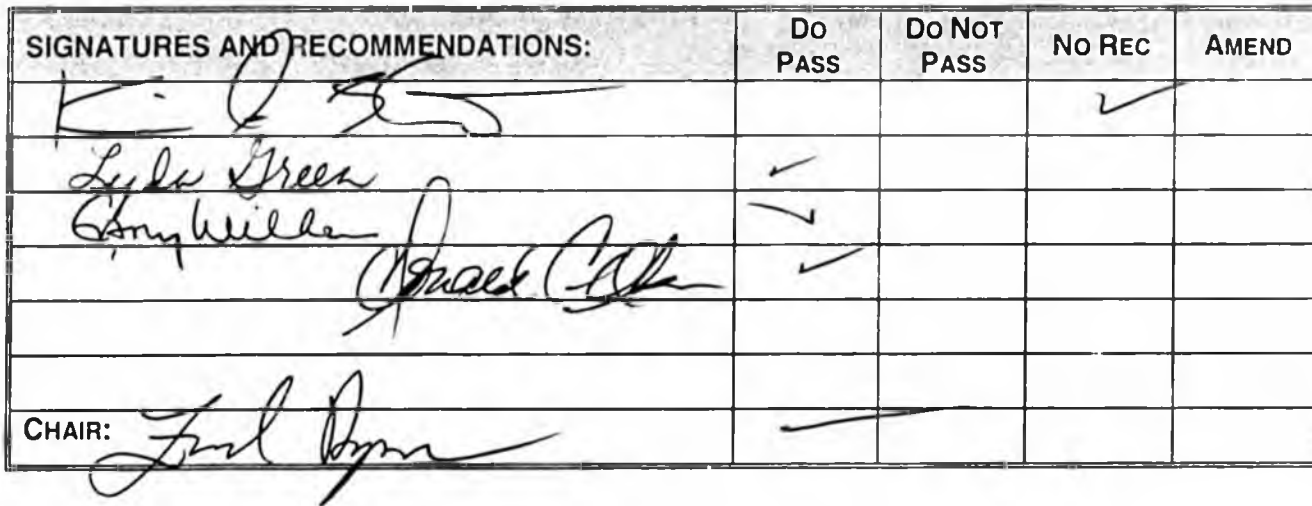 SIGNATURES AND RECOMMENDATIONS: DO PASS DO NOT PASS NO REC AMEND
✓
Lyda Green ✓
Gary Wilken ✓
Donald ✓
CHAIR: Fred Dyson ✓